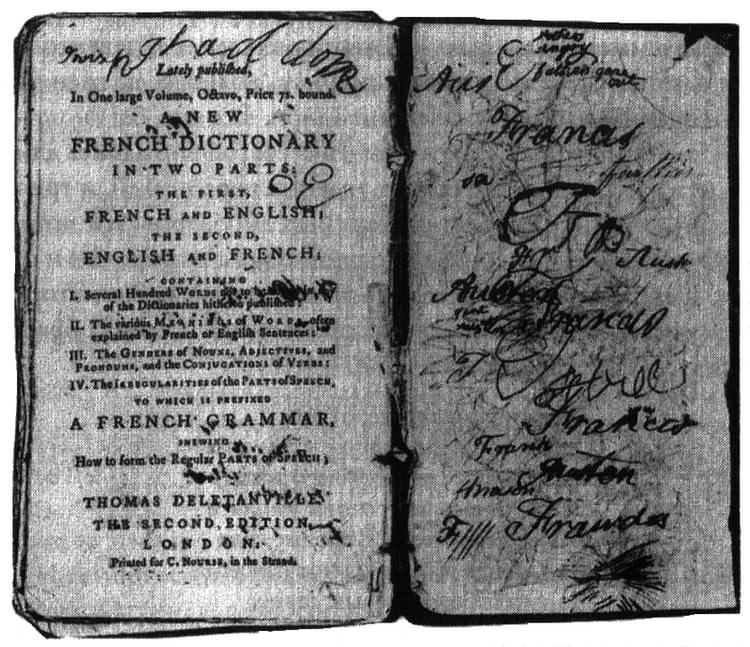 I wish I had done
Lately published,
In One large Volume, Octavo, Price 7s. bound.
A NEW
FRENCH DICTIONARY
IN TWO PARTS:
THE FIRST,
FRENCH AND ENGLISH;
THE SECOND,
ENGLISH AND FRENCH;
CONTAINING
I. Several Hundred WORDS not to be
of the Dictionaries hitherto published;
II. The various MEANINGS of WORDS, often
explained by French or English Sentences:
III. The GENDERS of NOUNS, ADJECTIVES, and
PRONOUNS, and the CONJUGATIONS of VERBS:
IV. The IRREGULARITIES of the PARTS of SPEECH,
TO WHICH IS PREFIXED
A FRENCH GRAMMAR,
SHEWING
How to form the Regular PARTS of SPEECH;
THOMAS DELETANVILLE
THE SECOND EDITION,
LONDON:
Printed for C. NOURSE, in the Strand.
mothers
angry
fathers gone
out
Aus
Francis
F
Aust
Austen
Francis
F
Francis
Frank
Austen
F Francis